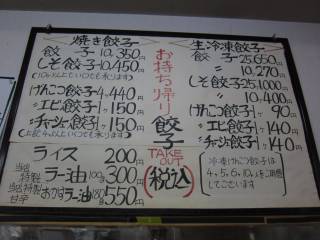 焼き餃子
餃子 10コ 350円
しそ餃子 10コ 450円
げんこつ餃子 4コ 440円
〃エビ餃子 1コ 150円
〃チャーシュー餃子 1コ 150円
ライス 200円
当店特製 ラー油 100g 300円
当店特製 おかずラー油 180g 550円
お持ち帰り餃子
TAKE OUT
税込
生冷凍餃子
餃子 25コ 650円
〃 10コ 270円
しそ餃子 25コ 1,000円
〃 10コ 400円
げんこつ餃子 1ケ 90円
〃エビ餃子 1ケ 140円
〃チャーシュー餃子 1ケ 140円
冷凍げんこつ餃子は
4ヶ、5ヶ、6ヶ、10ヶ入をご用意
してございます